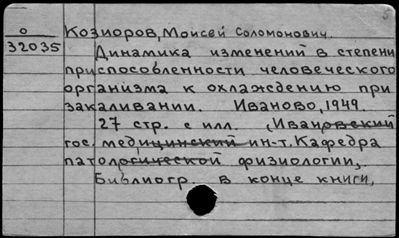 о Козиоров, Моисей Соломонович.
32035 Динамика изменений в степени
приспособленности человеческого
организма к охлаждению при
закаливании. Иваново, 1949.
27 стр. с илл. (Ивановский
гос. медицинский ин-т. Кафедра
патологической физиологии).
Библиогр. в конце книги,